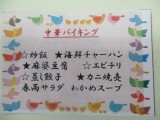 中華バイキング
☆炒飯 ★海鮮チャーハン
★麻婆豆腐 ☆エビチリ
☆蒸し餃子 ★カニ焼売
春雨サラダ わかめスープ